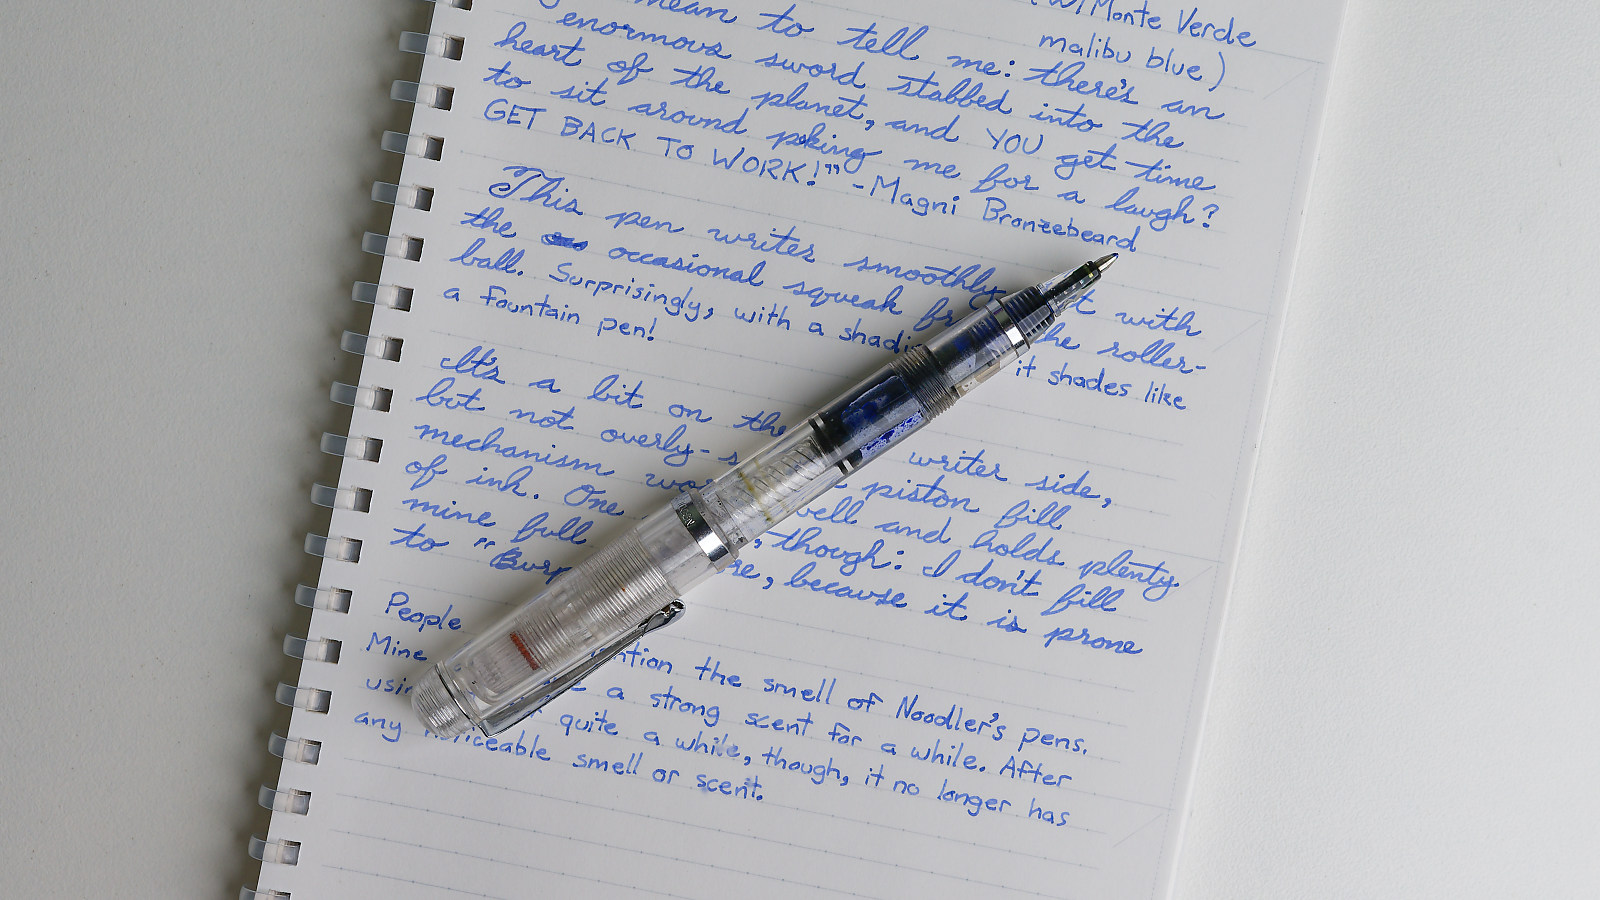 (w/Monte Verde
malibu blue)
mean to tell me: there's an
enormous sword stabbed into the
heart of the planet, and YOU get time
to sit around poking me for a laugh?
GET BACK TO WORK!" -Magni Bronzebeard
This pen writes smoothly with
the occasional squeak the roller-
ball. Surprisingly, with a it shades like
a fountain pen!
It's a bit on the writer side,
but not overly- piston fill
mechanism well and holds plenty
of ink. One , though: I don't fill
mine full because it is prone
to "Burp
People mention the smell of Noodler's pens.
Mine a strong scent for a while. After
using quite a while, though, it no longer has
any noticeable smell or scent.